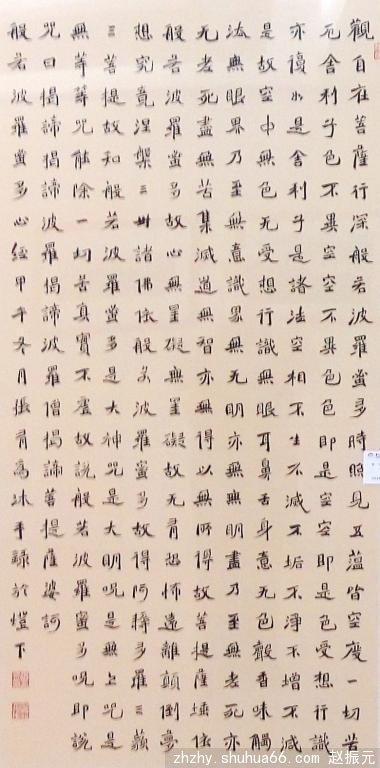 觀自在菩薩行深般若波羅蜜多時照見五蘊皆空度一切苦
厄舍利子色不異空空不異色色即是空空即是色受想行識
亦復如是舍利子是諸法空相不生不滅不垢不淨不增不減
是故空中無色无受想行識無眼耳鼻舌身意无色聲香味觸
法無眼界乃至無意識界無无明亦無無明盡乃至無老死亦
无老死盡無苦集滅道無智亦無得以無所得故菩提薩埵依
般若波羅蜜多故心無罣礙無罣礙故无有恐怖遠離顛倒夢
想究竟涅槃三世諸佛依般若波羅蜜多故得阿耨多羅三藐
三菩提故知般若波羅蜜多是大神咒是大明呪是無上咒是
無等等咒能除一切苦真實不虛故說般若波羅蜜多呪即說
咒曰揭諦揭諦波羅揭諦波羅僧揭諦菩提薩婆訶
般若波羅蜜多心經甲午冬月沐手錄於燈下
zhzhy.shuhua66.com 赵振元